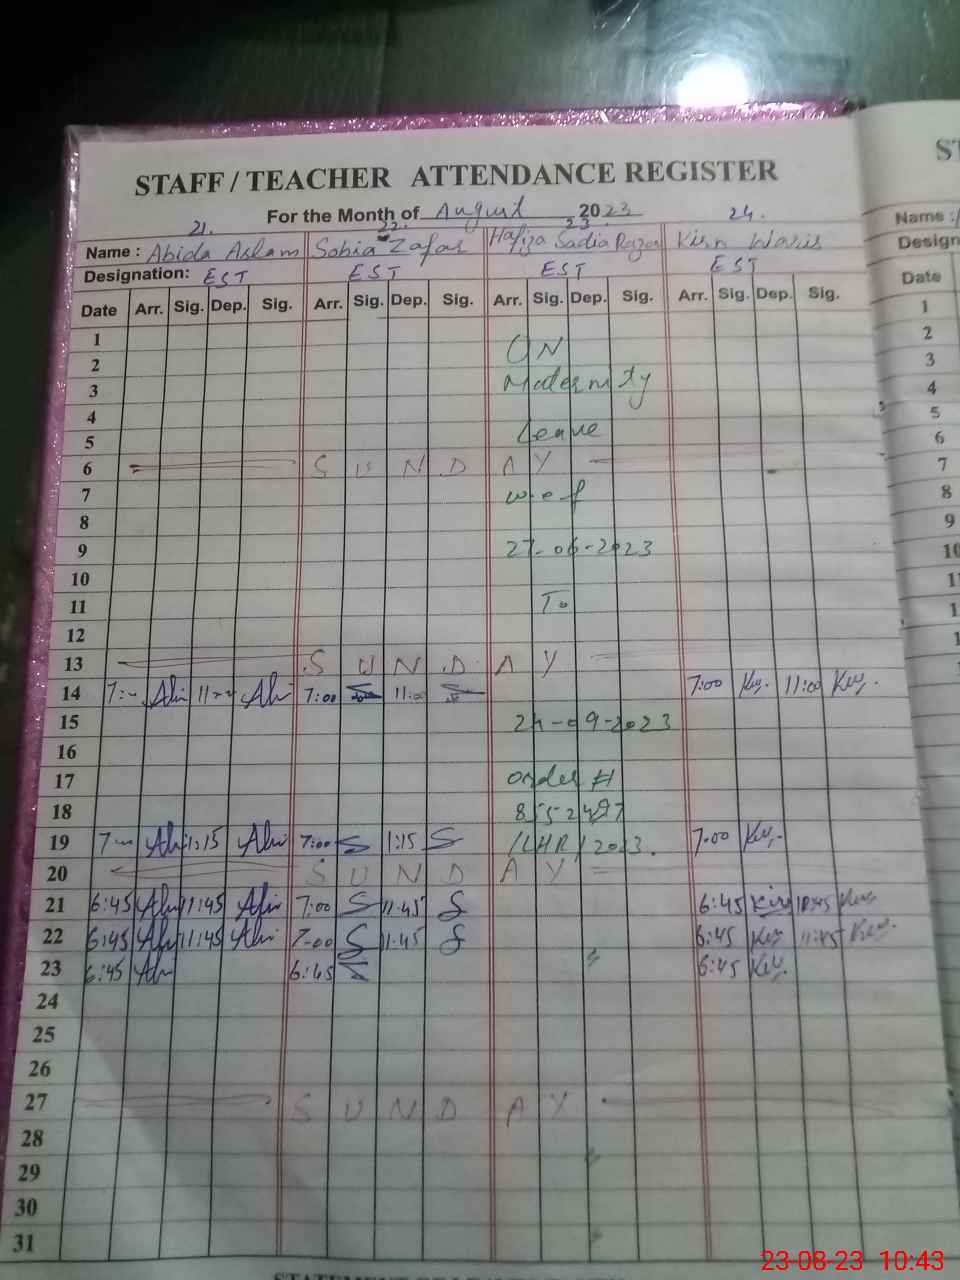 STAFF / TEACHER ATTENDANCE REGISTER
For the Month of August 2023
21. 22. 23 24.
Name : Abida Aslam Sobia Zafar Hafiza Sadia Kirn Waris
Designation: EST EST EST EST
Date Arr. Sig. Dep. Sig. Arr. Sig. Dep. Sig. Arr. Sig. Dep. Sig. Arr. Sig. Dep. Sig.
1 ON
2
3 Maternity
4
5 Leave
6 S U N D A Y
7 w.e.f
8
9 27-06-2023
10
11 To
12
13 S U N D A Y
14 7:00 11:00 7:00 11:00
15 24-09-2023
16
17 order #
18
19 1:15 7:00 1:15 S /LHR/2023. 7:00
20 S U N D A Y
21 6:45 11:45 7:00 11:45 6:45
22 6:45 11:45 7:00 6:45 11:45
23 6:45 6:45 6:45
24
25
26
27 S U N D A Y
28
29
30
31
ST
Name :
Design
Date
1
2
3
4
5
6
7
8
9
10
23-08-23 10:43